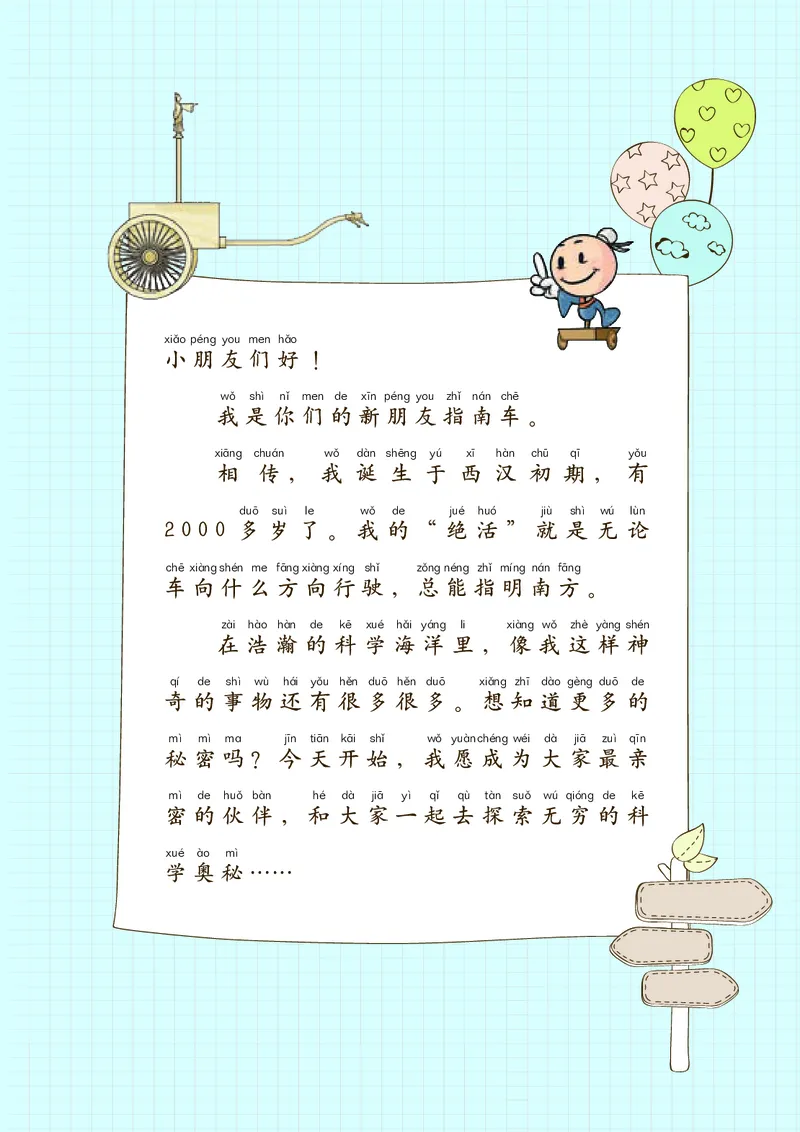 xiǎo péng you men hǎo
小朋友们好！
wǒ shì nǐ men de xīn péng you zhǐ nán chē
我是你们的新朋友指南车。
xiāng chuán wǒ dàn shēng yú xī hàn chū qī yǒu
相传，我诞生于西汉初期，有
duō suì le wǒ de jué huó jiù shì wú lùn
2000多岁了。我的“绝活”就是无论
chē xiàng shén me fāng xiàng xíng shǐ zǒng néng zhǐ míng nán fāng
车向什么方向行驶，总能指明南方。
zài hào hàn de kē xué hǎi yáng li xiàng wǒ zhè yàng shén
在浩瀚的科学海洋里，像我这样神
qí de shì wù hái yǒu hěn duō hěn duō xiǎng zhī dào gèng duō de
奇的事物还有很多很多。想知道更多的
mì mì ma jīn tiān kāi shǐ wǒ yuàn chéng wéi dà jiā zuì qīn
秘密吗？今天开始，我愿成为大家最亲
mì de huǒ bàn hé dà jiā yì qǐ qù tàn suǒ wú qióng de kē
密的伙伴，和大家一起去探索无穷的科
xué ào mì
学奥秘……